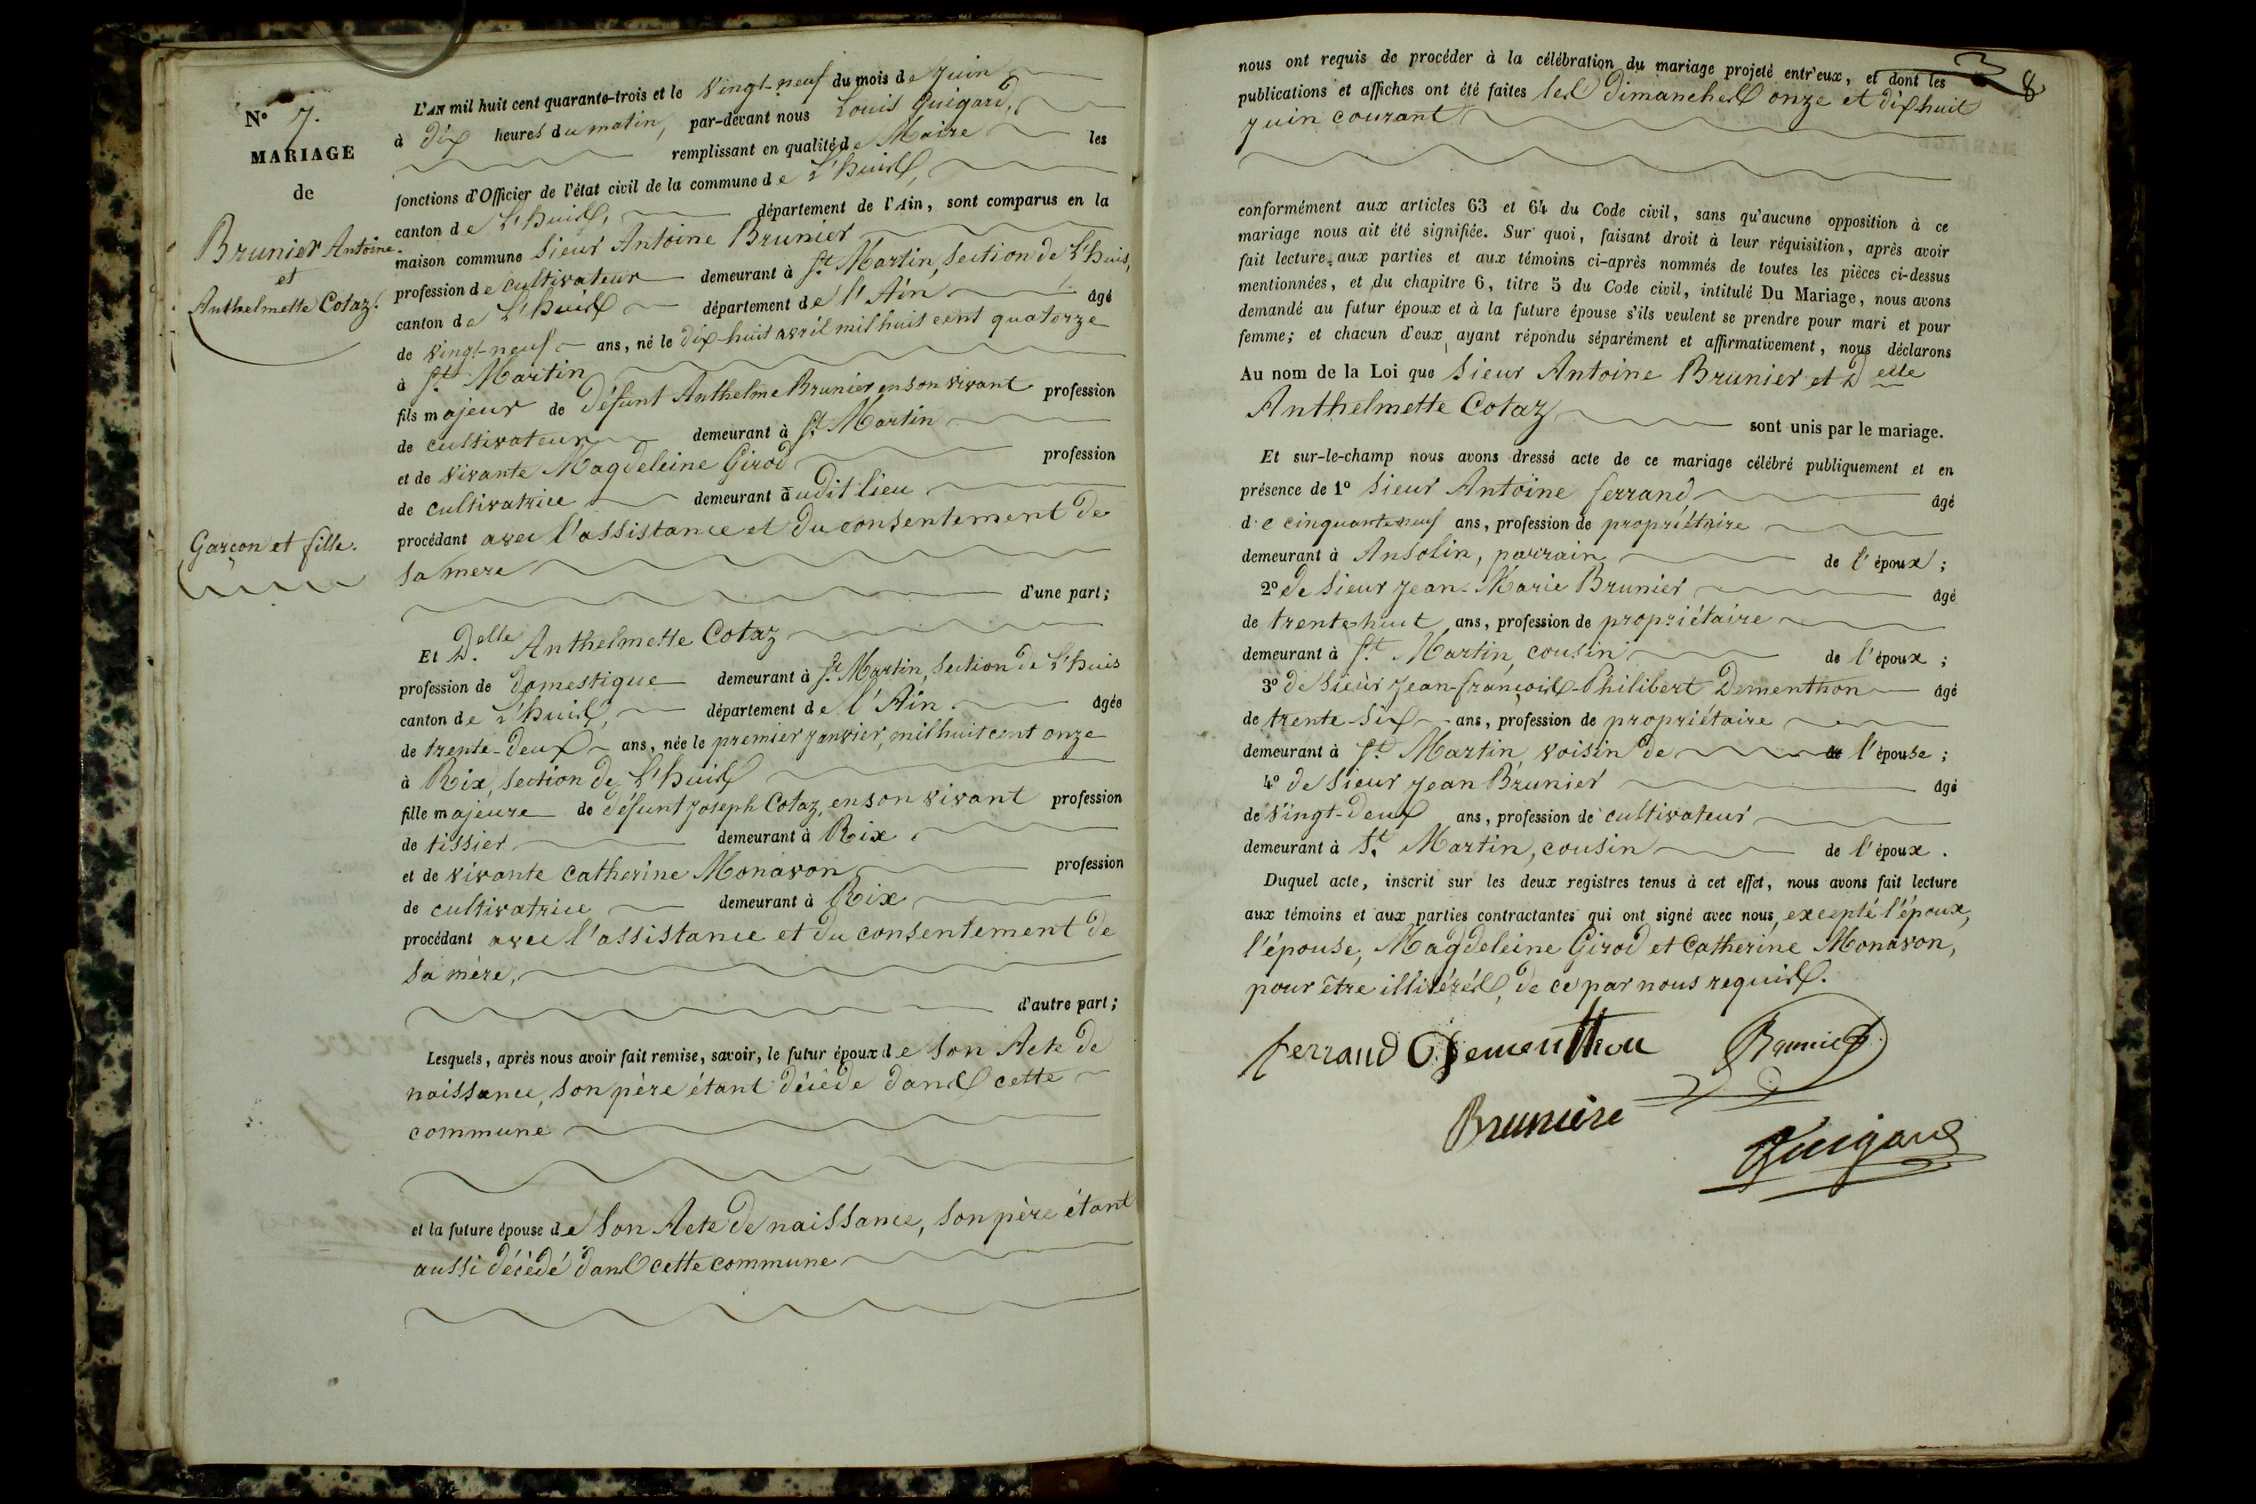 N° 7.
MARIAGE
de
Brunier Antoine.
et
Anthelmette Cotaz.
Garçon et fille.
L'AN mil huit cent quarante-trois et le vingt-neuf du mois de juin
à dix heures du matin, par-devant nous Louis Guigard,
remplissant en qualité de Maire les
fonctions d'Officier de l'état civil de la commune de L'huis,
canton de L'huis, département de l'Ain, sont comparus en la
maison commune sieur Antoine Brunier
profession de cultivateur demeurant à St. Martin, section de L'huis,
canton de L'huis département de l'Ain âgé
de vingt-neuf ans, né le dix-huit avril mil huit cent quatorze
à St. Martin
fils majeur de défunt Anthelme Brunier en son vivant profession
de cultivateur demeurant à St. Martin
et de vivante Magdeleine Girod profession
de cultivatrice demeurant audit lieu
procédant avec l'assistance et du consentement de
sa mere
d'une part;
Et Delle Anthelmette Cotaz
profession de domestique demeurant à St. Martin, section de L'huis
canton de L'huis, département de l'Ain âgée
de trente-deux ans, née le premier janvier, mil huit cent onze
à Rix, section de L'huis
fille majeure de défunt Joseph Cotaz, en son vivant profession
de tissier demeurant à Rix
et de vivante Catherine Monavon profession
de cultivatrice demeurant à Rix
procédant avec l'assistance et du consentement de
sa mère,
d'autre part;
Lesquels, après nous avoir fait remise, savoir, le futur époux de son Acte de
naissance, son père étant décédé dans cette
commune
et la future épouse de son Acte de naissance, son père étant
aussi décédé dans cette commune
3 8
nous ont requis de procéder à la célébration du mariage projeté entr'eux, et dont les
publications et affiches ont été faites les dimanches onze et dix huit
juin courant
conformément aux articles 63 et 64 du Code civil, sans qu'aucune opposition à ce
mariage nous ait été signifiée. Sur quoi, faisant droit à leur réquisition, après avoir
fait lecture aux parties et aux témoins ci-après nommés de toutes les pièces ci-dessus
mentionnées, et du chapitre 6, titre 5 du Code civil, intitulé Du Mariage, nous avons
demandé au futur époux et à la future épouse s'ils veulent se prendre pour mari et pour
femme; et chacun d'eux ayant répondu séparément et affirmativement, nous déclarons
Au nom de la Loi que sieur Antoine Brunier et Delle
Anthelmette Cotaz sont unis par le mariage.
Et sur-le-champ nous avons dressé acte de ce mariage célébré publiquement et en
présence de 1° sieur Antoine ferrand âgé
de cinquante neuf ans, profession de propriétaire
demeurant à Ansolin, parrain de l'époux;
2° de sieur Jean-Marie Brunier âgé
de trente-huit ans, profession de propriétaire
demeurant à St. Martin, cousin de l'époux;
3° de sieur Jean-françois-Philibert Dementhon âgé
de trente-six ans, profession de propriétaire
demeurant à St. Martin, voisin de de l'épouse;
4° de sieur Jean Brunier âgé
de vingt-deux ans, profession de cultivateur
demeurant à St. Martin, cousin de l'époux.
Duquel acte, inscrit sur les deux registres tenus à cet effet, nous avons fait lecture
aux témoins et aux parties contractantes qui ont signé avec nous, excepté l'époux,
l'épouse, Magdeleine Girod et Catherine Monavon,
pour être illitérés, de ce par nous requis.
ferrand Dementhon Brunier
Bruniere
Guigard